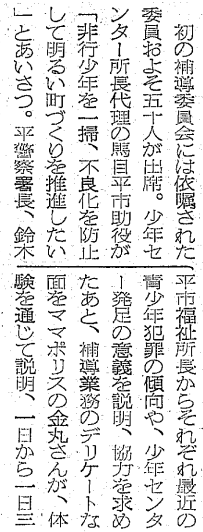 初の補導委員会には依嘱された
委員およそ五十人が出席。少年セ
ンター所長代理の馬目平市助役が
「非行少年を一掃、不良化を防止
して明るい町づくりを推進したい
」とあいさつ。平警察署長、鈴木
平市福祉所長からそれぞれ最近の
青少年犯罪の傾向や、少年センタ
ー発足の意義を説明、協力を求め
たあと、補導業務のデリケートな
面をママポリスの金丸さんが、体
験を通じて説明、一日から一日三